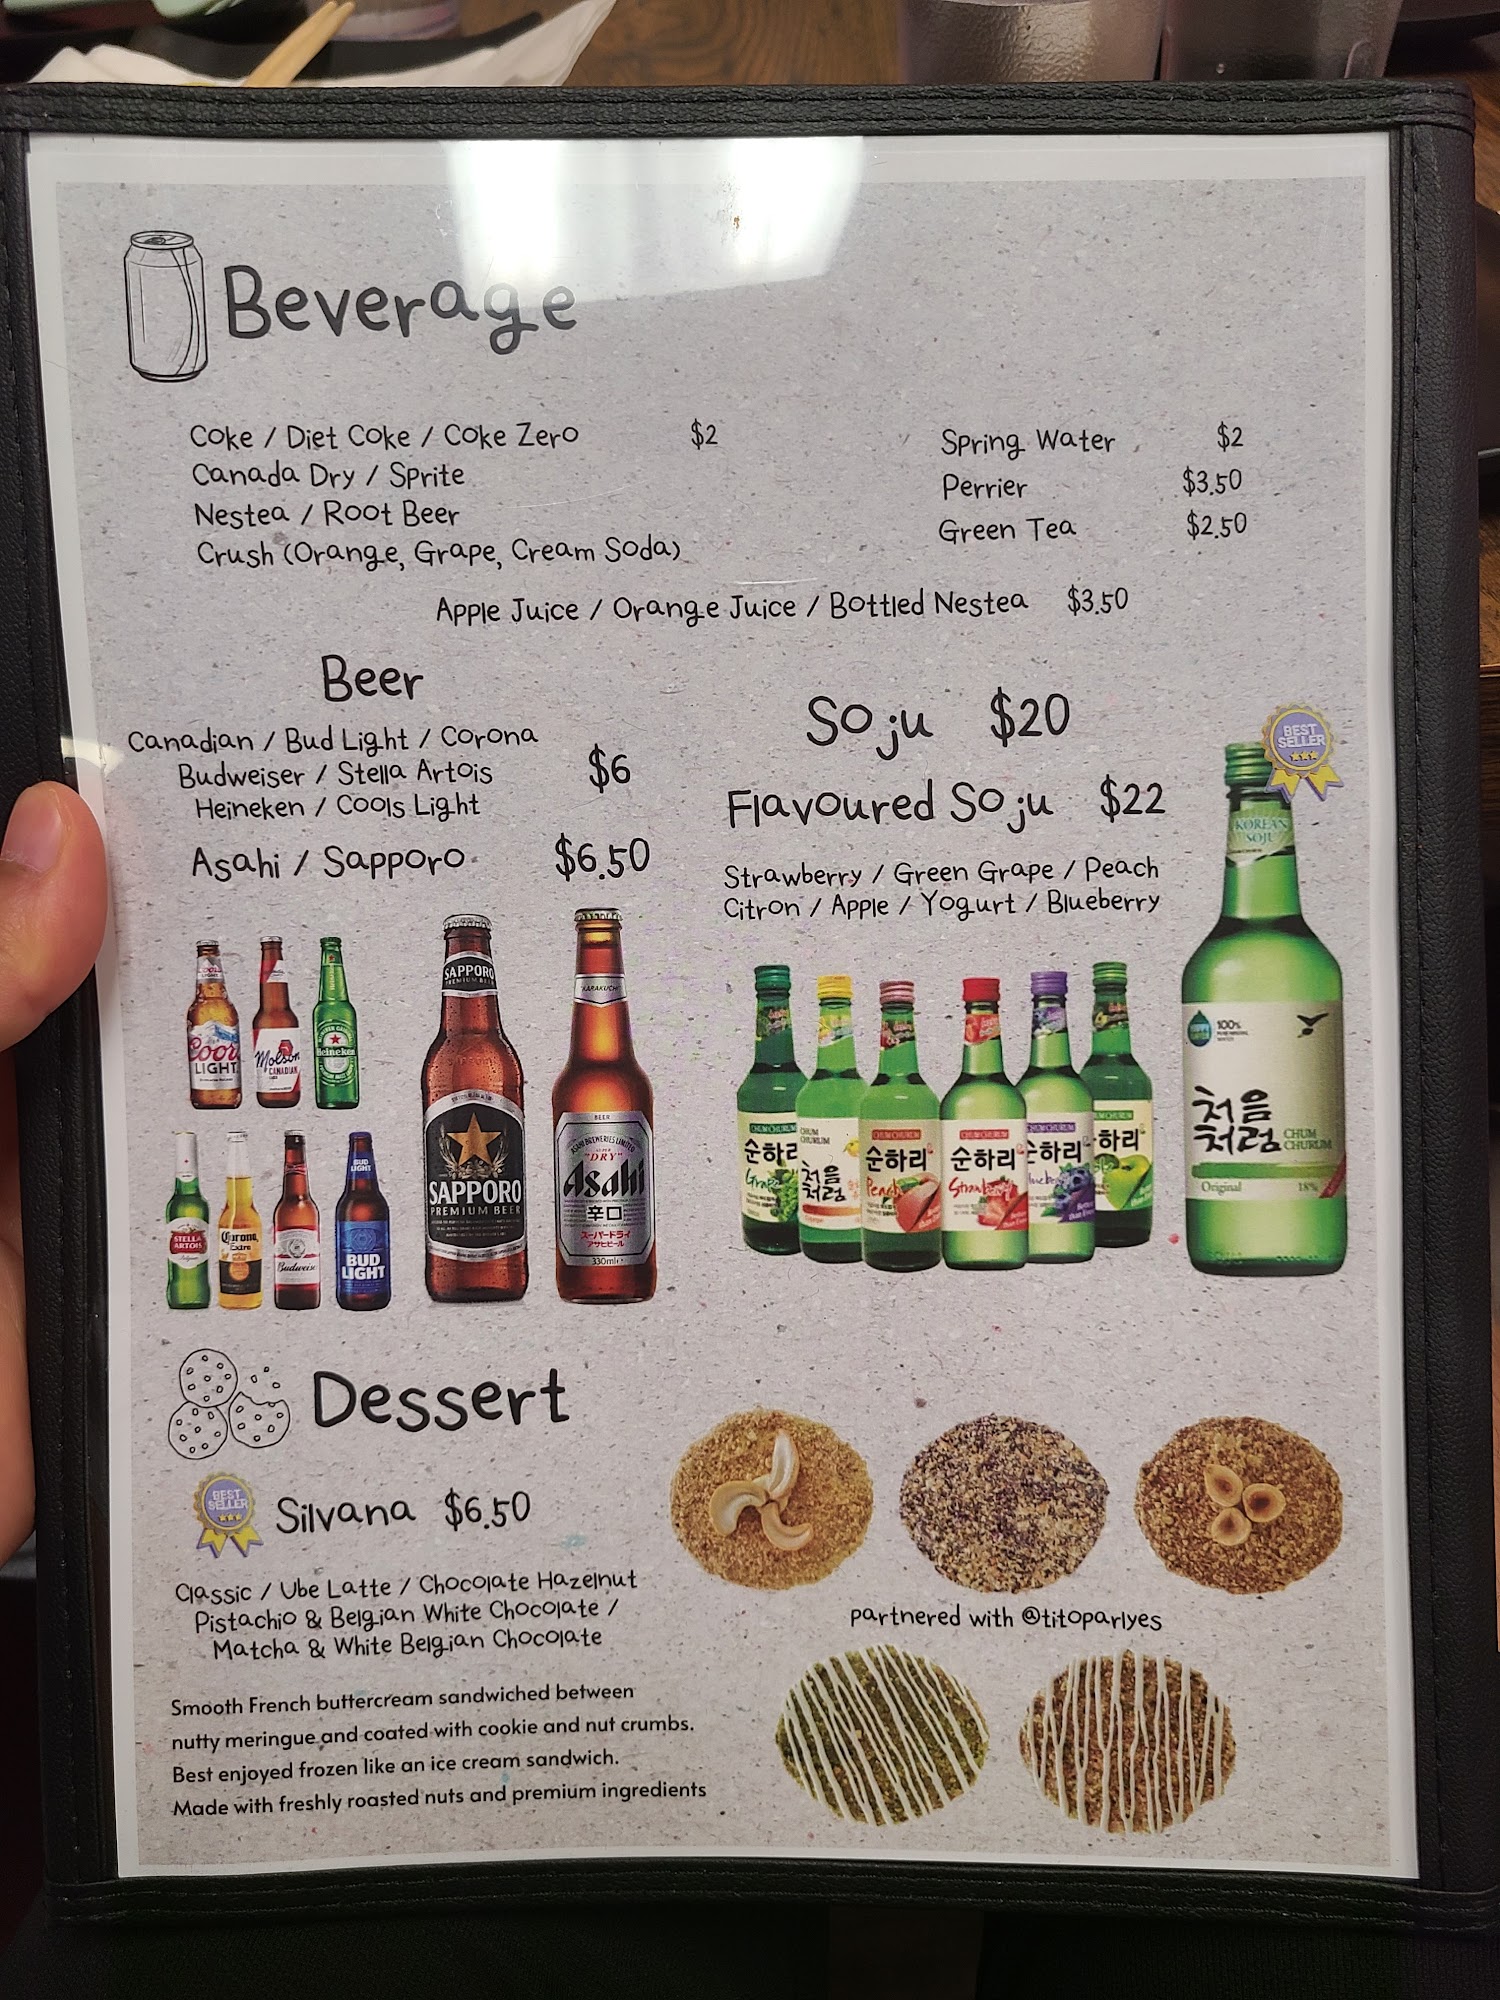 Beverage
Coke / Diet Coke / Coke Zero $2
Canada Dry / Sprite
Nestea / Root Beer
Crush (Orange, Grape, Cream Soda)
Spring Water $2
Perrier $3.50
Green Tea $2.50
Apple Juice / Orange Juice / Bottled Nestea $3.50
Beer
Canadian / Bud Light / Corona
Budweiser / Stella Artois
Heineken / Cools Light
$6
Asahi / Sapporo $6.50
Soju $20
Flavoured Soju $22
Strawberry / Green Grape / Peach
Citron / Apple / Yogurt / Blueberry
BEST
SELLER
KOREAN
SOJU
100%
처음
처럼
CHUM
CHURUM
Original 18%
LIGHT
Molson
CANADIAN
Heineken
STELLA
ARTOIS
Corona
Extra
Budweiser
BUD
LIGHT
BUD
LIGHT
SAPPORO
PREMIUM BEER
SAPPORO
PREMIUM BEER
"KARAKUCHI"
BEER
ASAHI BREWERIES LIMITED
SUPER
"DRY"
Asahi
辛口
スーパードライ
アサヒビール
330ml
순하리
CHUM
CHURUM
처음
처럼
CHUM CHURUM
순하리
Peach
CHUM CHURUM
순하리
Strawberry
순하리
순하리
Dessert
BEST
SELLER
Silvana $6.50
Classic / Ube Latte / Chocolate Hazelnut
Pistachio & Belgian White Chocolate /
Matcha & White Belgian Chocolate
Smooth French buttercream sandwiched between
nutty meringue and coated with cookie and nut crumbs.
Best enjoyed frozen like an ice cream sandwich.
Made with freshly roasted nuts and premium ingredients
partnered with @titoparlyes